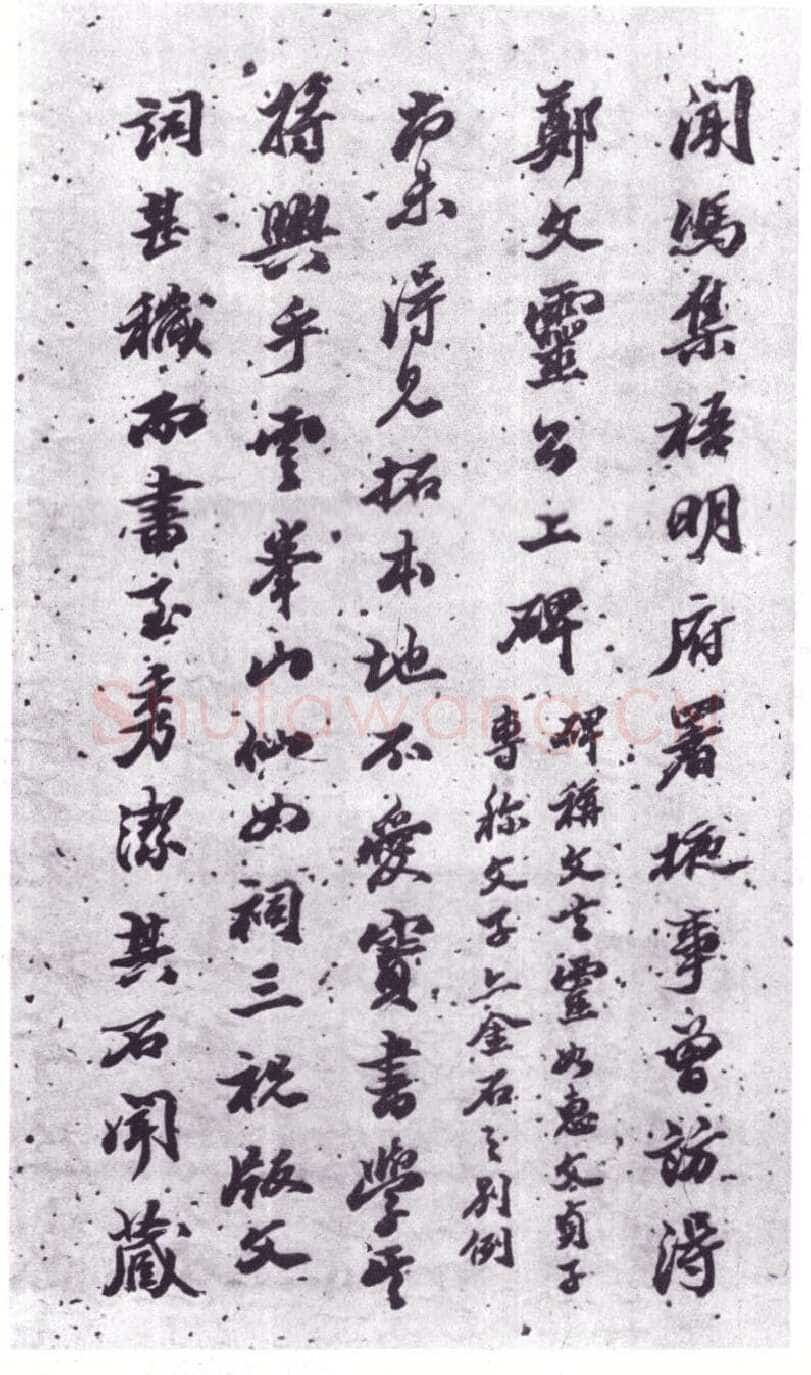 聞馮集梧明府署掖事曾訪得
鄭文靈公上碑
碑稱文靈如惠文貞子
專称文子上金石之别例
尚未得見拓本地不愛寶書學其
將興乎雲峯山仙如祠三祝版文
詞甚穢而書至秀潔其石聞藏
Shufawang.cn